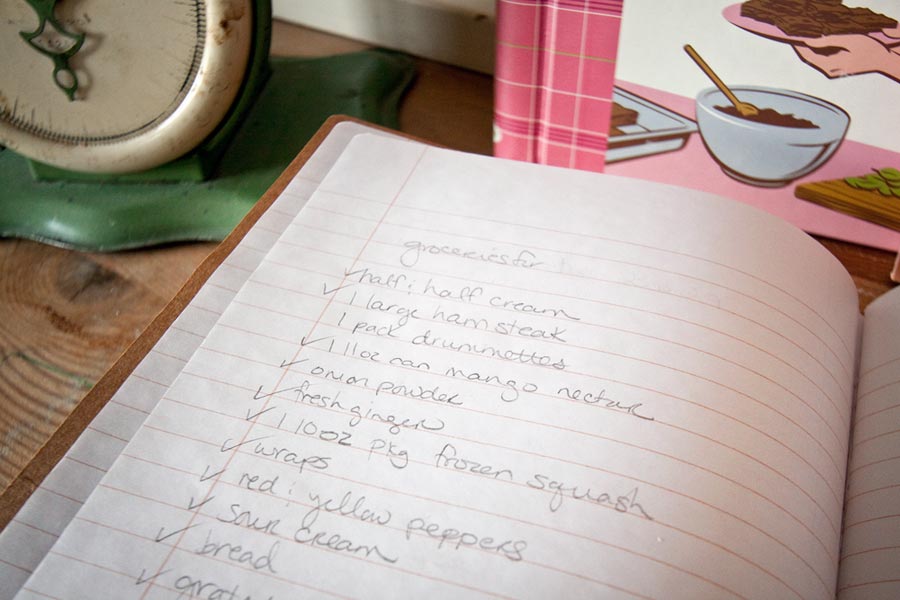 groceries for
✓ half & half cream
✓ 1 large ham steak
1 pack drummettes
✓ 1 11oz can mango nectar
✓ onion powder
✓ fresh ginger
✓ 1 10oz pkg frozen squash
✓ wraps
✓ red & yellow peppers
✓ sour cream
✓ bread